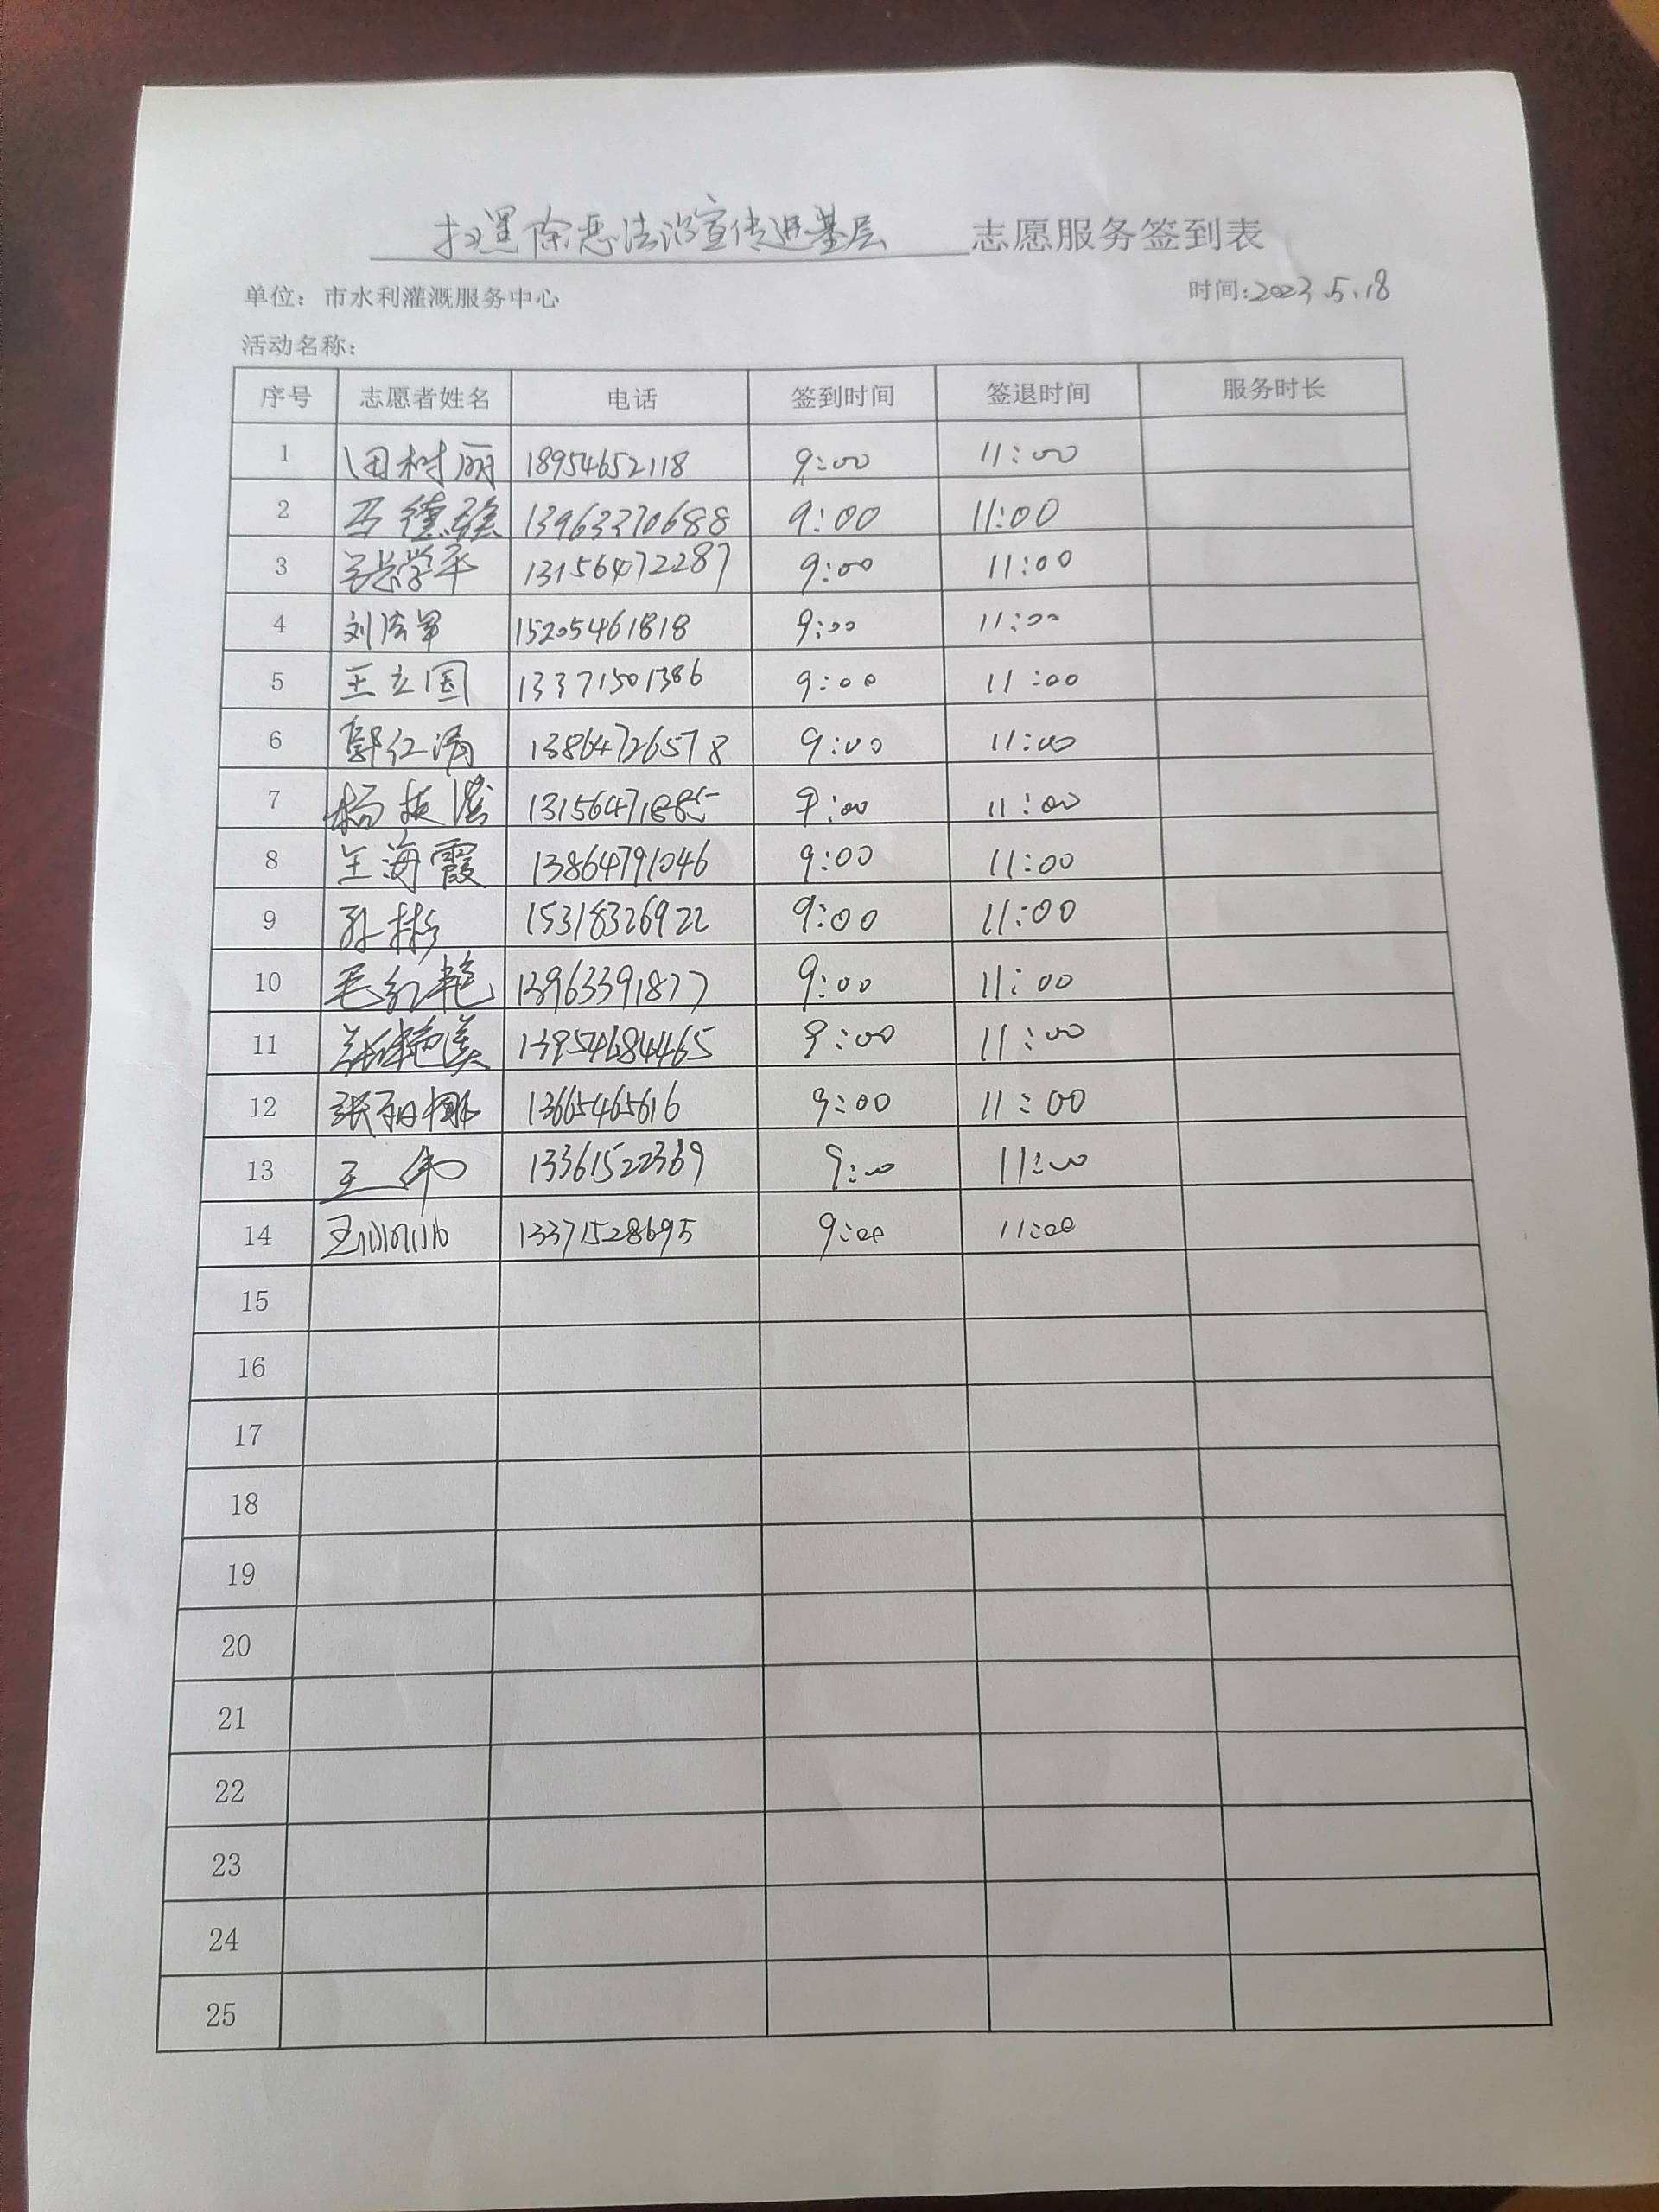 扫黑除恶法治宣传进基层 志愿服务签到表
单位：市水利灌溉服务中心 时间:2023.5.18
活动名称：
序号 志愿者姓名 电话 签到时间 签退时间 服务时长
1 田树丽 18954652118 9:00 11:00
2 13963370688 9:00 11:00
3 吴学平 13156472287 9:00 11:00
4 刘法军 15205461818 9:00 11:00
5 王立国 13371501386 9:00 11:00
6 郭仁涛 13864726578 9:00 11:00
7 9:00 11:00
8 王海霞 13864791046 9:00 11:00
9 孙彬 15318326922 9:00 11:00
10 毛红艳 13963391877 9:00 11:00
11 13954684465 9:00 11:00
12 张丽娜 13665465616 9:00 11:00
13 王伟 13361522369 9:00 11:00
14 13371528695 9:00 11:00
15
16
17
18
19
20
21
22
23
24
25